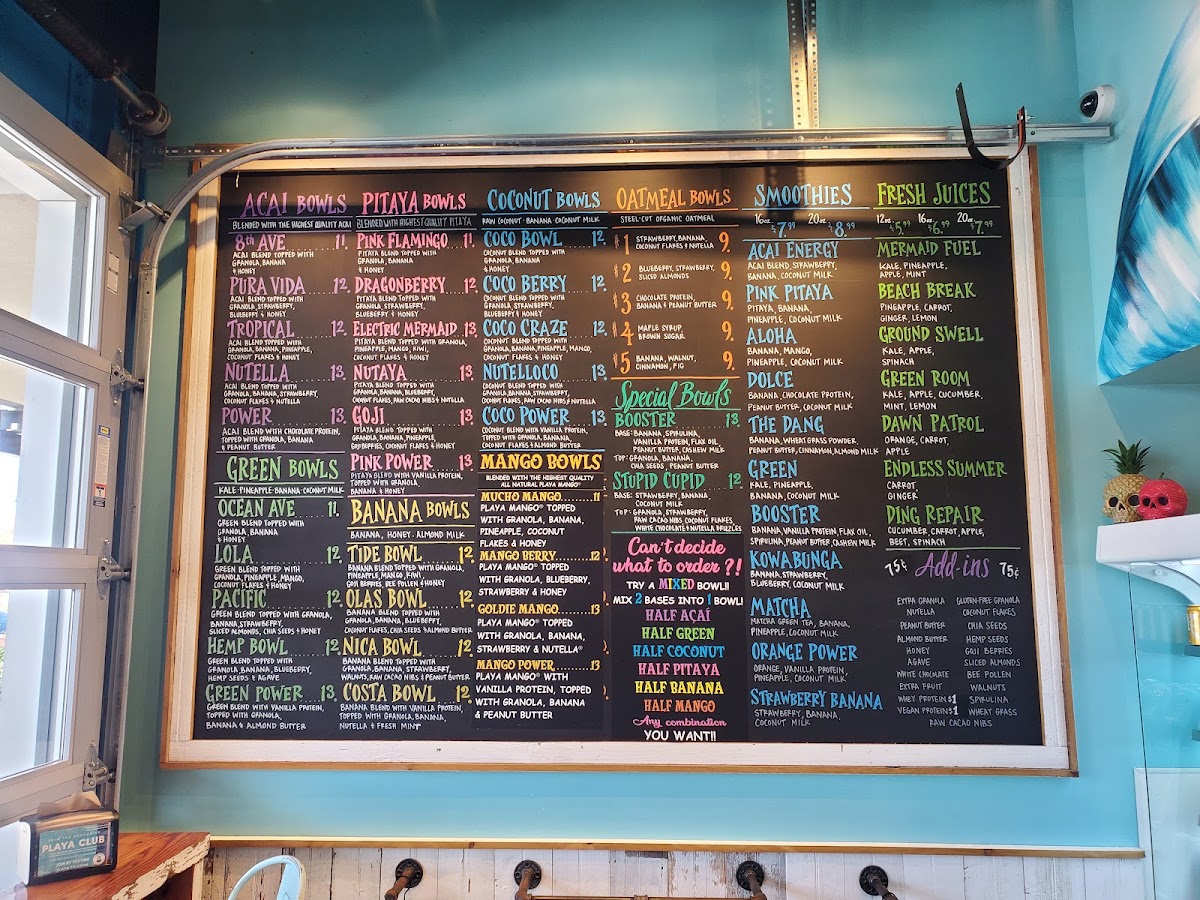 ACAI BOWLS
BLENDED WITH THE HIGHEST QUALITY ACAI
8th AVE 11.
ACAI BLEND TOPPED WITH
GRANOLA, BANANA
& HONEY
PURA VIDA 12.
ACAI BLEND TOPPED WITH
GRANOLA, STRAWBERRY,
BLUEBERRY & HONEY
TROPICAL 12.
ACAI BLEND TOPPED WITH
GRANOLA, BANANA, PINEAPPLE,
COCONUT FLAKES & HONEY
NUTELLA 13.
ACAI BLEND TOPPED WITH
GRANOLA, BANANA, STRAWBERRY,
COCONUT FLAKES & NUTELLA
POWER 13.
ACAI BLEND WITH CHOCOLATE PROTEIN,
TOPPED WITH GRANOLA, BANANA
& PEANUT BUTTER
GREEN BOWLS
KALE·PINEAPPLE·BANANA·COCONUT MILK
OCEAN AVE 11.
GREEN BLEND TOPPED WITH
GRANOLA, BANANA
& HONEY
LOLA 12.
GREEN BLEND TOPPED WITH
GRANOLA, PINEAPPLE, MANGO,
COCONUT FLAKES & HONEY
PACIFIC 12.
GREEN BLEND TOPPED WITH GRANOLA,
BANANA, STRAWBERRY,
SLICED ALMONDS, CHIA SEEDS & HONEY
HEMP BOWL 12.
GREEN BLEND TOPPED WITH
GRANOLA, BANANA, BLUEBERRY,
HEMP SEEDS & AGAVE
GREEN POWER 13.
GREEN BLEND WITH VANILLA PROTEIN,
TOPPED WITH GRANOLA,
BANANA & ALMOND BUTTER
PITAYA BOWLS
BLENDED WITH HIGHEST QUALITY PITAYA
PINK FLAMINGO 11.
PITAYA BLEND TOPPED WITH
GRANOLA, BANANA
& HONEY
DRAGONBERRY 12.
PITAYA BLEND TOPPED WITH
GRANOLA, STRAWBERRY,
BLUEBERRY & HONEY
ELECTRIC MERMAID 13.
PITAYA BLEND TOPPED WITH GRANOLA,
PINEAPPLE, MANGO, KIWI,
COCONUT FLAKES & HONEY
NUTAYA 13.
PITAYA BLEND TOPPED WITH
GRANOLA, BANANA, BLUEBERRY,
COCONUT FLAKES, RAW CACAO NIBS & NUTELLA
GOJI 13.
PITAYA BLEND TOPPED WITH
GRANOLA, BANANA, PINEAPPLE,
GOJI BERRIES, COCONUT FLAKES & HONEY
PINK POWER 13.
PITAYA BLEND WITH VANILLA PROTEIN,
TOPPED WITH GRANOLA,
BANANA & HONEY
BANANA BOWLS
BANANA, HONEY, ALMOND MILK
TIDE BOWL 12.
BANANA BLEND TOPPED WITH GRANOLA,
PINEAPPLE, MANGO, KIWI,
GOJI BERRIES, BEE POLLEN & HONEY
OLAS BOWL 12.
BANANA BLEND TOPPED WITH
GRANOLA, BANANA, BLUEBERRY,
COCONUT FLAKES, CHIA SEEDS & ALMOND BUTTER
NICA BOWL 12.
BANANA BLEND TOPPED WITH
GRANOLA, BANANA, STRAWBERRY,
WALNUTS, RAW CACAO NIBS & PEANUT BUTTER
COSTA BOWL 12.
BANANA BLEND WITH VANILLA PROTEIN,
TOPPED WITH GRANOLA, BANANA,
NUTELLA & FRESH MINT
COCONUT BOWLS
RAW COCONUT·BANANA·COCONUT MILK
COCO BOWL 12.
COCONUT BLEND TOPPED WITH
GRANOLA, BANANA
& HONEY
COCO BERRY 12.
COCONUT BLEND TOPPED WITH
GRANOLA, STRAWBERRY,
BLUEBERRY & HONEY
COCO CRAZE 12.
COCONUT BLEND TOPPED WITH
GRANOLA, BANANA, PINEAPPLE, MANGO,
COCONUT FLAKES & HONEY
NUTELLOCO 13.
COCONUT BLEND TOPPED WITH
GRANOLA, BANANA, STRAWBERRY,
COCONUT FLAKES, RAW CACAO NIBS & NUTELLA
COCO POWER 13.
COCONUT BLEND WITH VANILLA PROTEIN,
TOPPED WITH GRANOLA, BANANA,
COCONUT FLAKES & ALMOND BUTTER
MANGO BOWLS
BLENDED WITH THE HIGHEST QUALITY
ALL NATURAL PLAYA MANGO®
MUCHO MANGO 11
PLAYA MANGO® TOPPED
WITH GRANOLA, BANANA,
PINEAPPLE, COCONUT
FLAKES & HONEY
MANGO BERRY 12
PLAYA MANGO® TOPPED
WITH GRANOLA, BLUEBERRY,
STRAWBERRY & HONEY
GOLDIE MANGO 13
PLAYA MANGO® TOPPED
WITH GRANOLA, BANANA,
STRAWBERRY & NUTELLA®
MANGO POWER 13
PLAYA MANGO® WITH
VANILLA PROTEIN, TOPPED
WITH GRANOLA, BANANA
& PEANUT BUTTER
OATMEAL BOWLS
STEEL-CUT ORGANIC OATMEAL
#1 STRAWBERRY, BANANA, 9.
COCONUT FLAKES & NUTELLA
#2 BLUEBERRY, STRAWBERRY, 9.
SLICED ALMONDS
#3 CHOCOLATE PROTEIN, 9.
BANANA & PEANUT BUTTER
#4 MAPLE SYRUP, 9.
BROWN SUGAR
#5 BANANA, WALNUT, 9.
CINNAMON, FIG
Special Bowls
BOOSTER 13.
BASE: BANANA, SPIRULINA,
VANILLA PROTEIN, FLAX OIL,
PEANUT BUTTER, CASHEW MILK
TOP: GRANOLA, BANANA,
CHIA SEEDS, PEANUT BUTTER
STUPID CUPID 12.
BASE: STRAWBERRY, BANANA,
COCONUT MILK
TOP: GRANOLA, STRAWBERRY,
RAW CACAO NIBS, COCONUT FLAKES,
WHITE CHOCOLATE & NUTELLA DRIZZLES
Can't decide
what to order?!
TRY A MIXED BOWL!!
MIX 2 BASES INTO 1 BOWL!
HALF AÇAÍ
HALF GREEN
HALF COCONUT
HALF PITAYA
HALF BANANA
HALF MANGO
Any combination
YOU WANT!!
SMOOTHIES
16oz. $7.99 20oz. $8.99
ACAI ENERGY
ACAI BLEND, STRAWBERRY,
BANANA, COCONUT MILK
PINK PITAYA
PITAYA, BANANA,
PINEAPPLE, COCONUT MILK
ALOHA
BANANA, MANGO,
PINEAPPLE, COCONUT MILK
DOLCE
BANANA, CHOCOLATE PROTEIN,
PEANUT BUTTER, COCONUT MILK
THE DANG
BANANA, WHEATGRASS POWDER,
PEANUT BUTTER, CINNAMON, ALMOND MILK
GREEN
KALE, PINEAPPLE,
BANANA, COCONUT MILK
BOOSTER
BANANA, VANILLA PROTEIN, FLAX OIL,
SPIRULINA, PEANUT BUTTER, CASHEW MILK
KOWABUNGA
BANANA, STRAWBERRY,
BLUEBERRY, COCONUT MILK
MATCHA
MATCHA GREEN TEA, BANANA,
PINEAPPLE, COCONUT MILK
ORANGE POWER
ORANGE, VANILLA PROTEIN,
PINEAPPLE, COCONUT MILK
STRAWBERRY BANANA
STRAWBERRY, BANANA,
COCONUT MILK
FRESH JUICES
12oz. $5.99 16oz. $6.99 20oz. $7.99
MERMAID FUEL
KALE, PINEAPPLE,
APPLE, MINT
BEACH BREAK
PINEAPPLE, CARROT,
GINGER, LEMON
GROUND SWELL
KALE, APPLE,
SPINACH
GREEN ROOM
KALE, APPLE, CUCUMBER,
MINT, LEMON
DAWN PATROL
ORANGE, CARROT,
APPLE
ENDLESS SUMMER
CARROT,
GINGER
DING REPAIR
CUCUMBER, CARROT, APPLE,
BEET, SPINACH
75¢ Add-ins 75¢
EXTRA GRANOLA
NUTELLA
PEANUT BUTTER
ALMOND BUTTER
HONEY
AGAVE
WHITE CHOCOLATE
EXTRA FRUIT
WHEY PROTEIN $1
VEGAN PROTEIN $1
GLUTEN-FREE GRANOLA
COCONUT FLAKES
CHIA SEEDS
HEMP SEEDS
GOJI BERRIES
SLICED ALMONDS
BEE POLLEN
WALNUTS
SPIRULINA
WHEAT GRASS
RAW CACAO NIBS
PLAYA CLUB